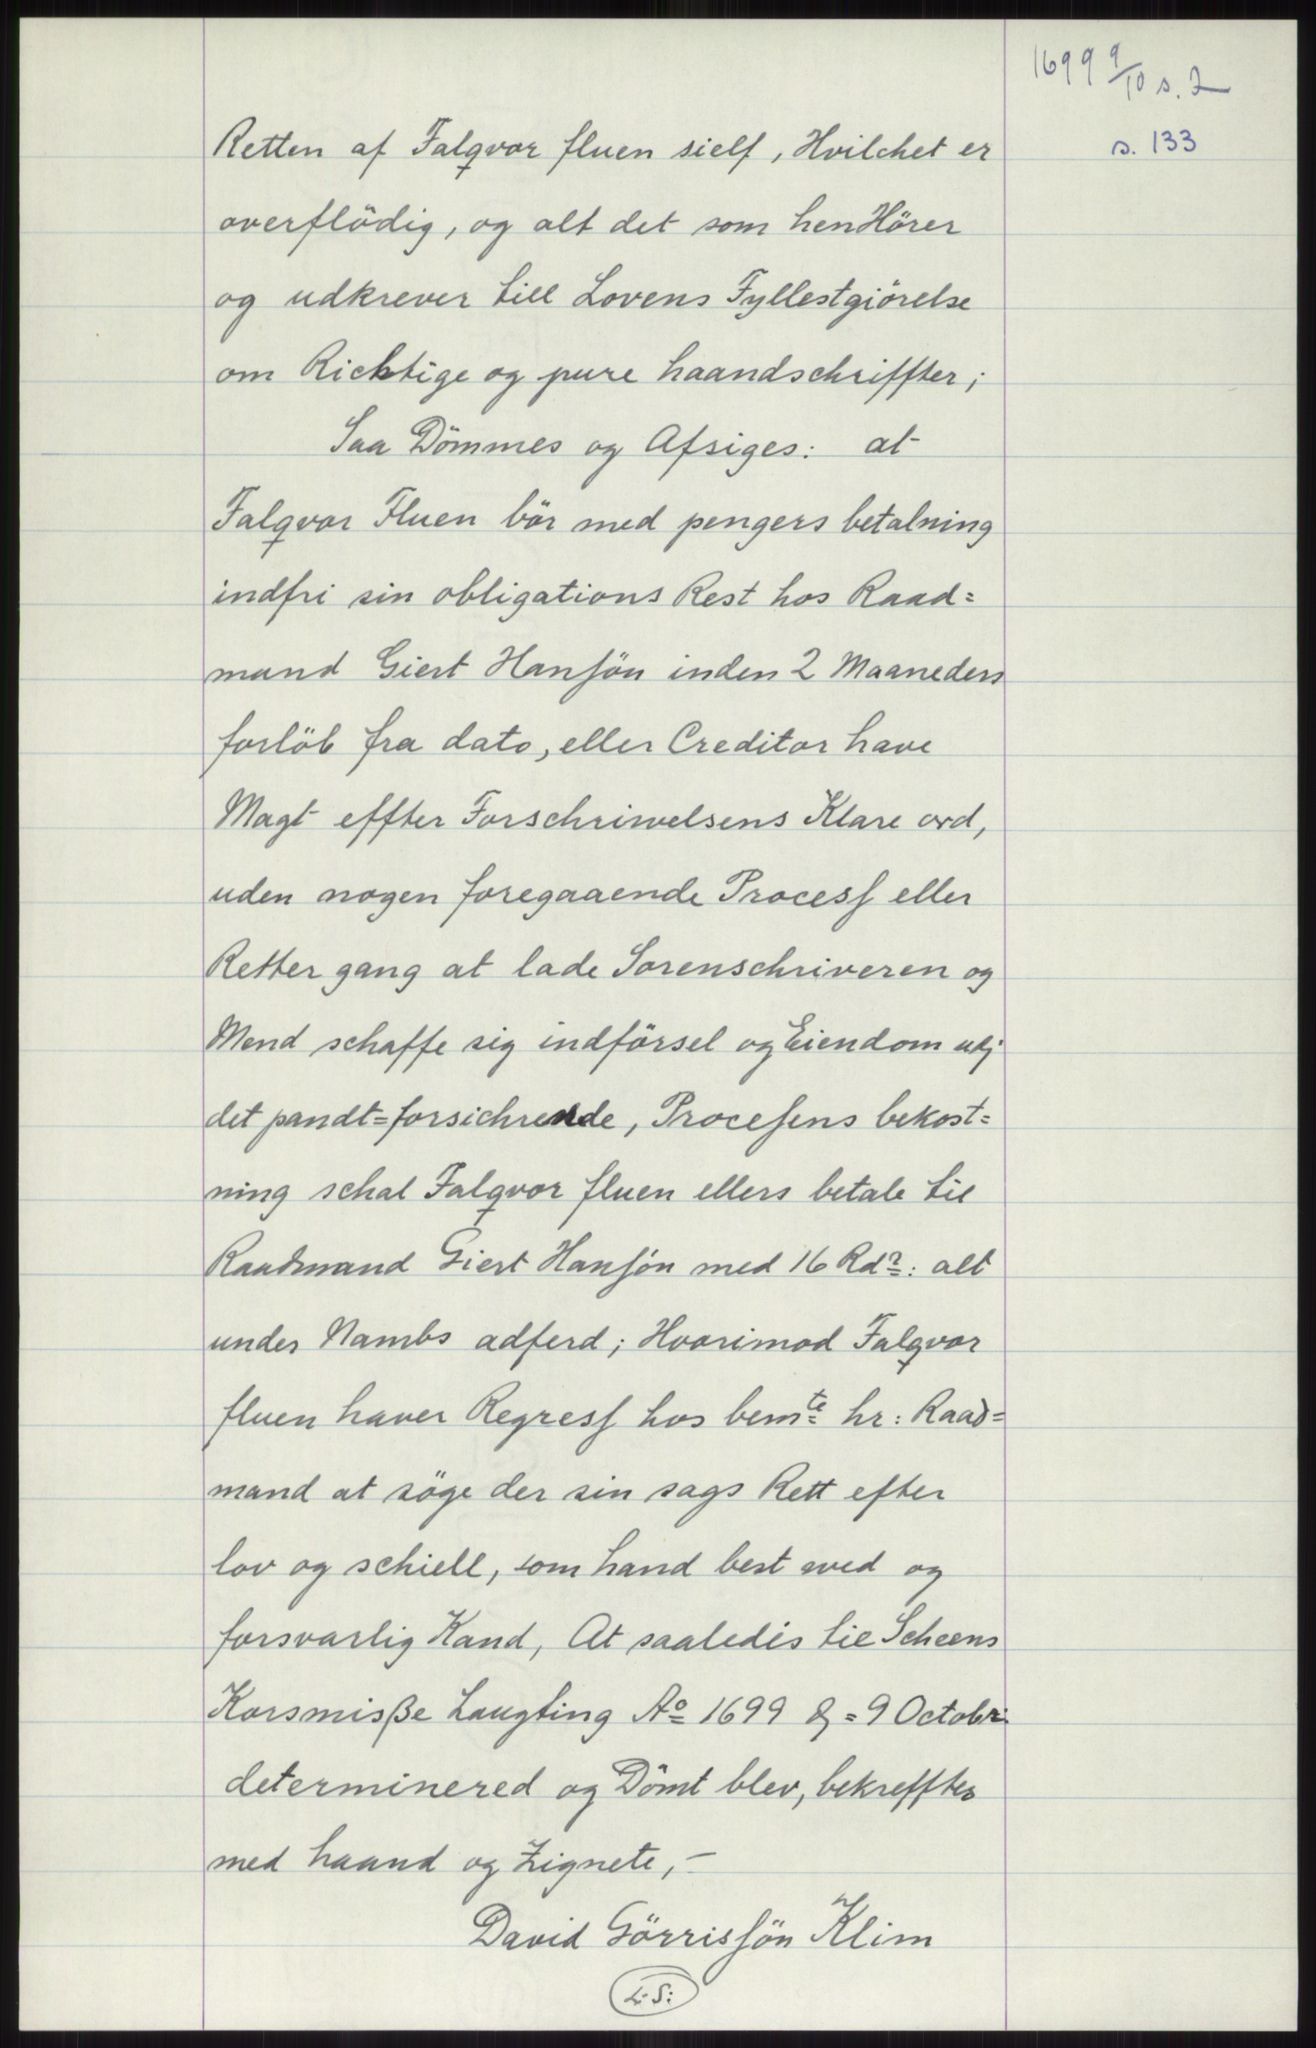 1699 9/10 s. 2
s. 133
Retten af Falqvor fluen sielf, Hvilchet er
overflödig, og alt det som henHörer
og udkrever till Lovens Fyllestgiörelse
om Ricktige og pure haandschriffter;
Saa Dömmes og Afsiges: at
Falqvor Fluen bör med pengers betalning
indfri sin obligations Rest hos Raad=
mand Giert Hansön inden 2 Maaneders
forlöb fra dato, eller Creditor have
Magt effter Forschriwelsens Klare ord,
uden nogen foregaaende Process eller
Retter gang at lade Sorenschriveren og
Mend schaffe sig indförsel og Eiendom udj
det pandt=forsichrende, Processens bekost=
ning schal Falqvor fluen ellers betale til
Raadmand Giert Hansön med 16 Rdr: alt
under Nambs adferd; Hvorimod Falqvor
fluen haver Regress hos bemte hr: Raad=
mand at söge der sin sags Rett efter
lov og schiell, som hand best wed og
forsvarlig Kand, At saaledis til Scheens
Korsmisße Laugting Ao 1699 d = 9 Octobr:
determinered og Dömt blev, bekreffter
med haand og Zignete,-
David Görrissön Klim
L. S: